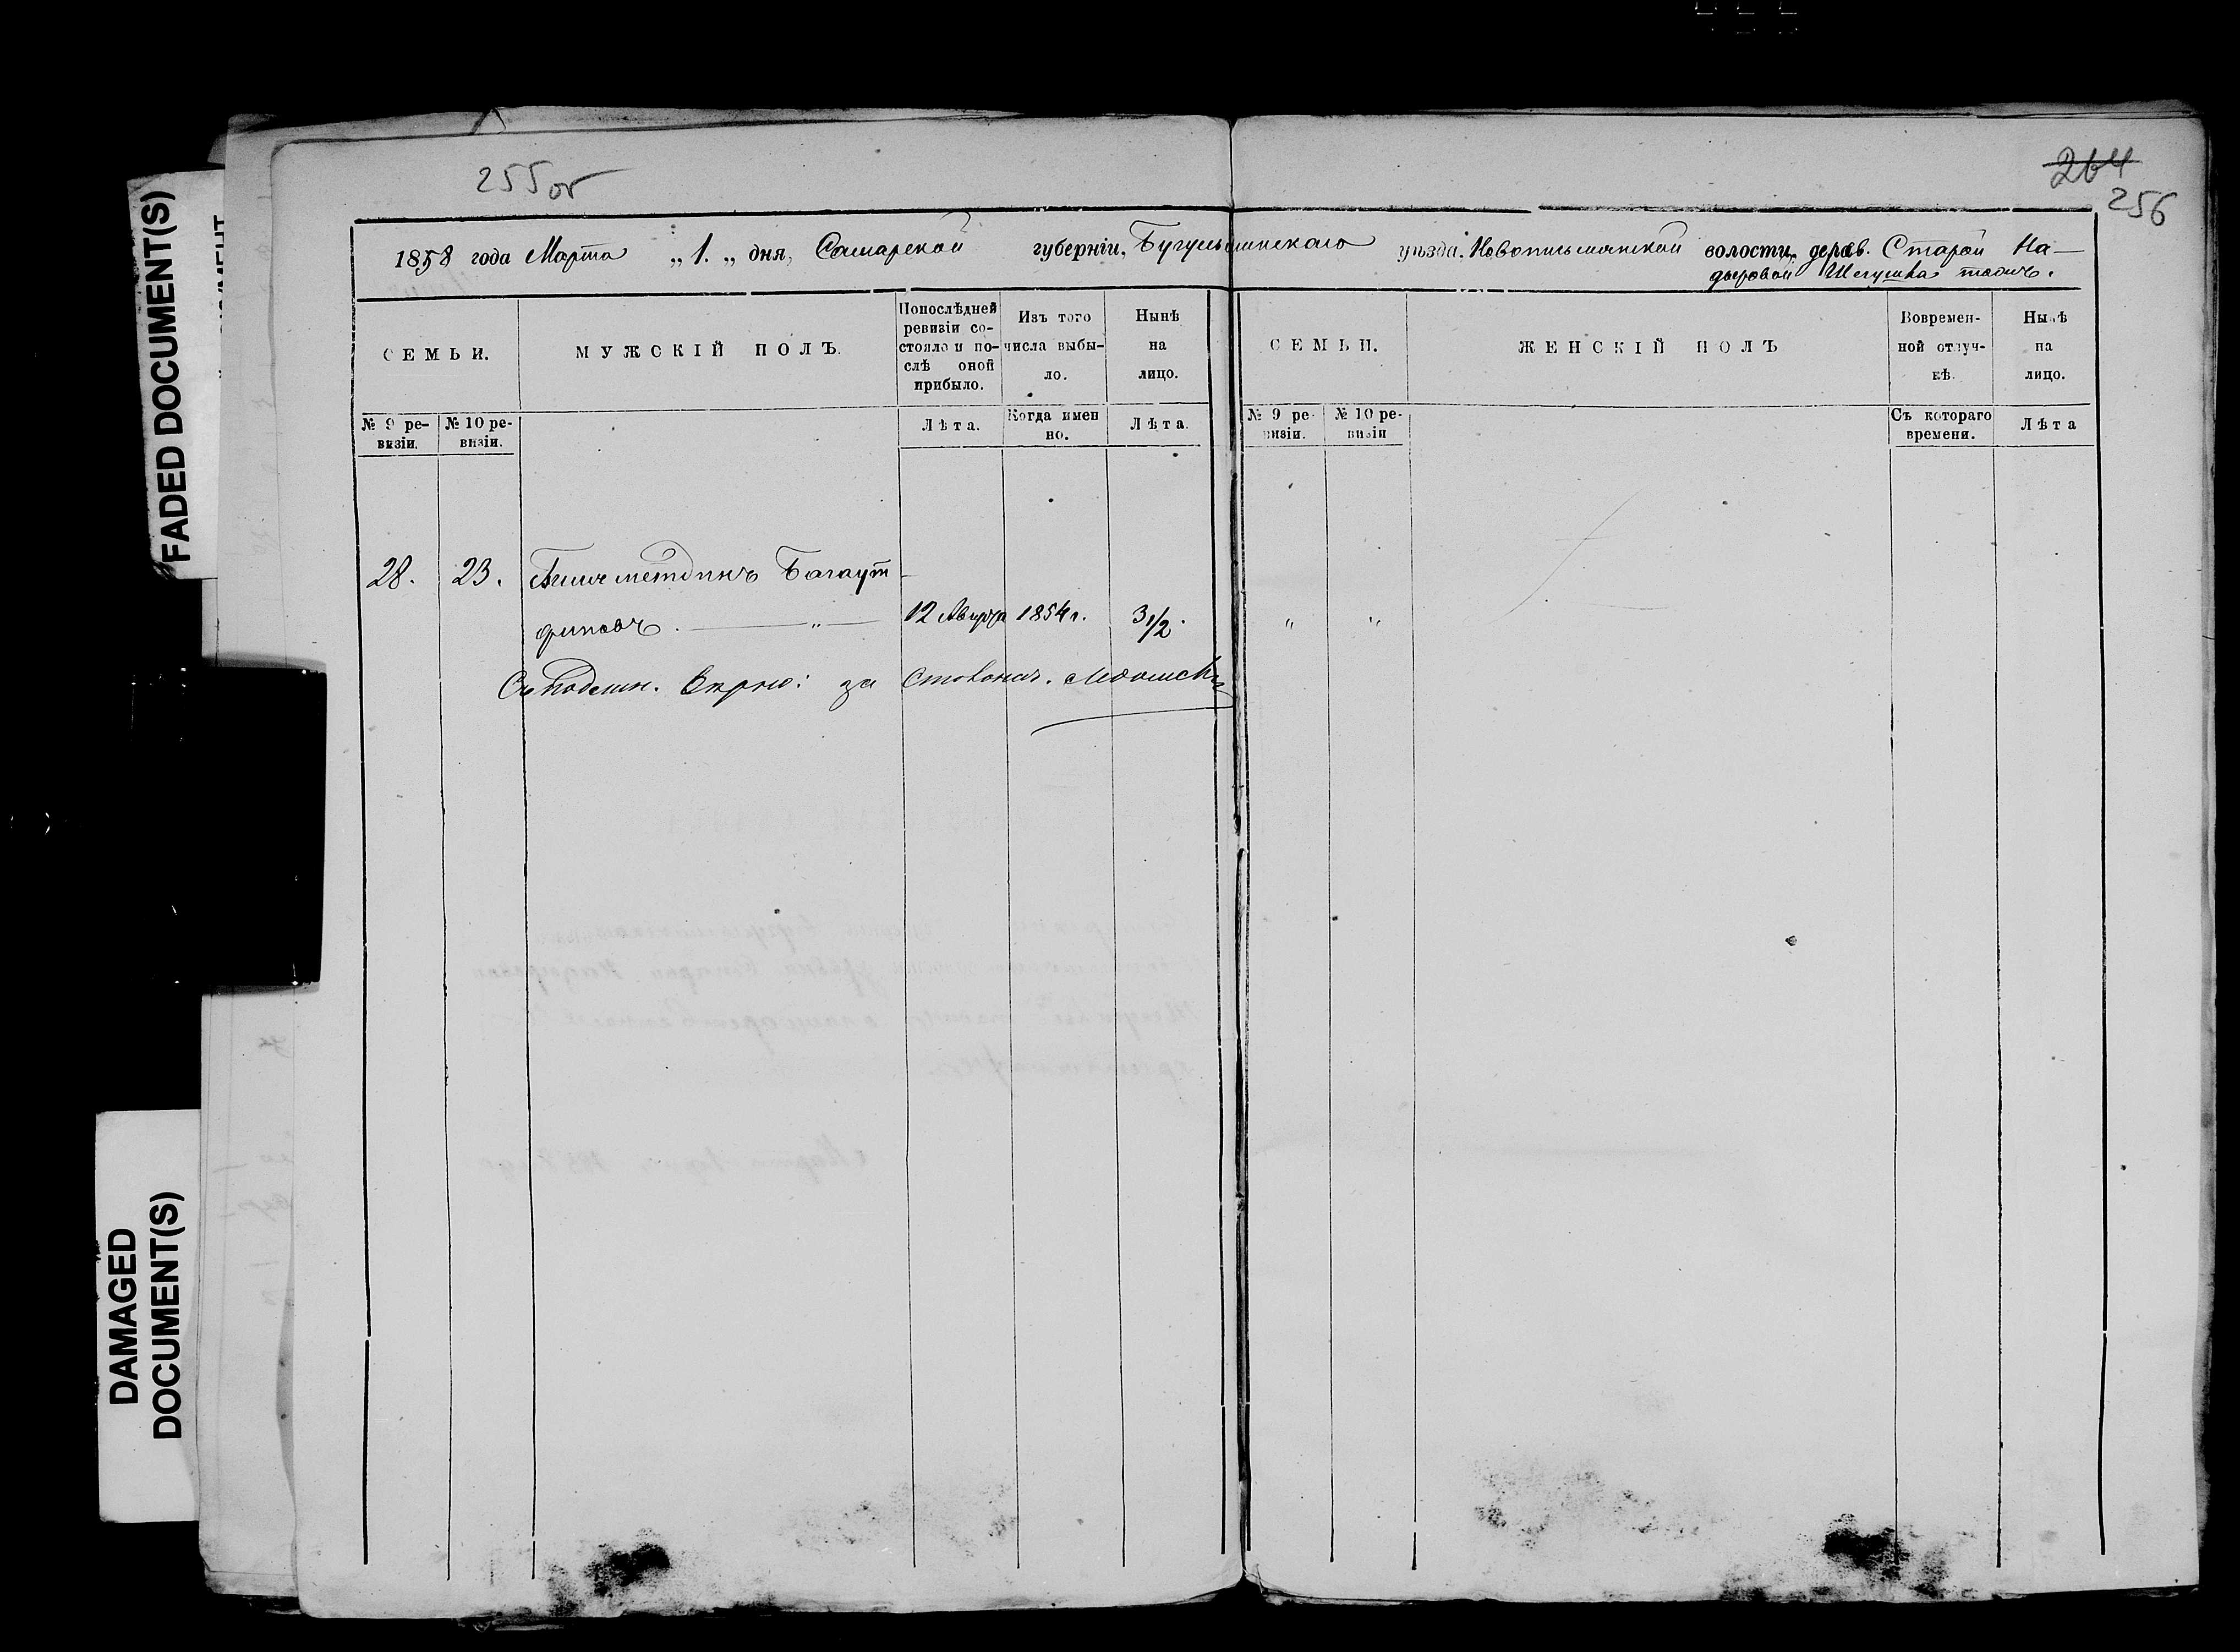 FADED DOCUMENT(S)
DAMAGED
DOCUMENT(S)
255 об
264
256
1858 года Марта „ 1. „ дня, Самарской губерніи, Бугульминскаго уѣзда, Новописьмянской волости, дерев. Старой На-
дыровой Шегушка тожъ.
СЕМЬИ.
МУЖСКІЙ ПОЛЪ.
Попослѣдней ревизіи со-стояло и по-слѣ оной прибыло.
Изъ того числа выбы-ло.
Нынѣ на лицо.
СЕМЬИ.
ЖЕНСКІЙ ПОЛЪ
Вовремен-ной отлуч-кѣ.
Нынѣ на лицо.
№ 9 ре-визіи.
№ 10 ре-визіи.
Лѣта.
Когда имен но.
Лѣта.
№ 9 ре-визіи.
№ 10 ре-визіи
Съ котораго времени.
Лѣта
28. 23. Багаут-
диновъ. — „ — 12 Августа 1854 г. 3 1/2. „ „
Съ подлин. вѣрно: за